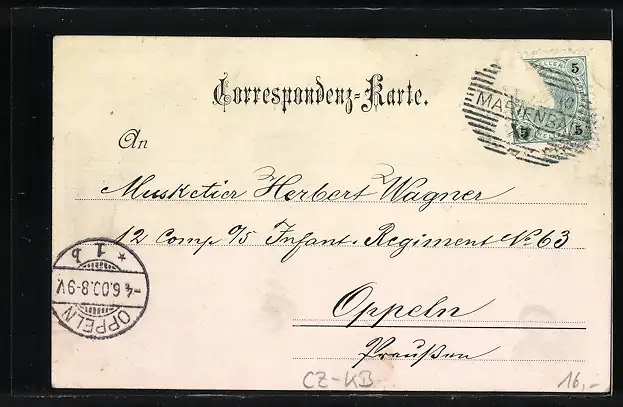 Correspondenz-Karte.
5 HELLER
MARIENBA
5 5
An
Musketier Herbert Wagner
12 Comp 9/5 Infant. Regiment No 63
Oppeln
Preußen
* 1 b
-4.6.00.8-9V.
OPPELN
CZ-KB
16,-